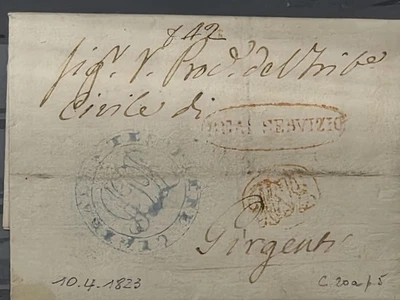 842
Sigr. V. Proc.e del Tribe
Civile di
REAL SERVIZIO
Girgenti
10.4.1823
C. 20 a p.5